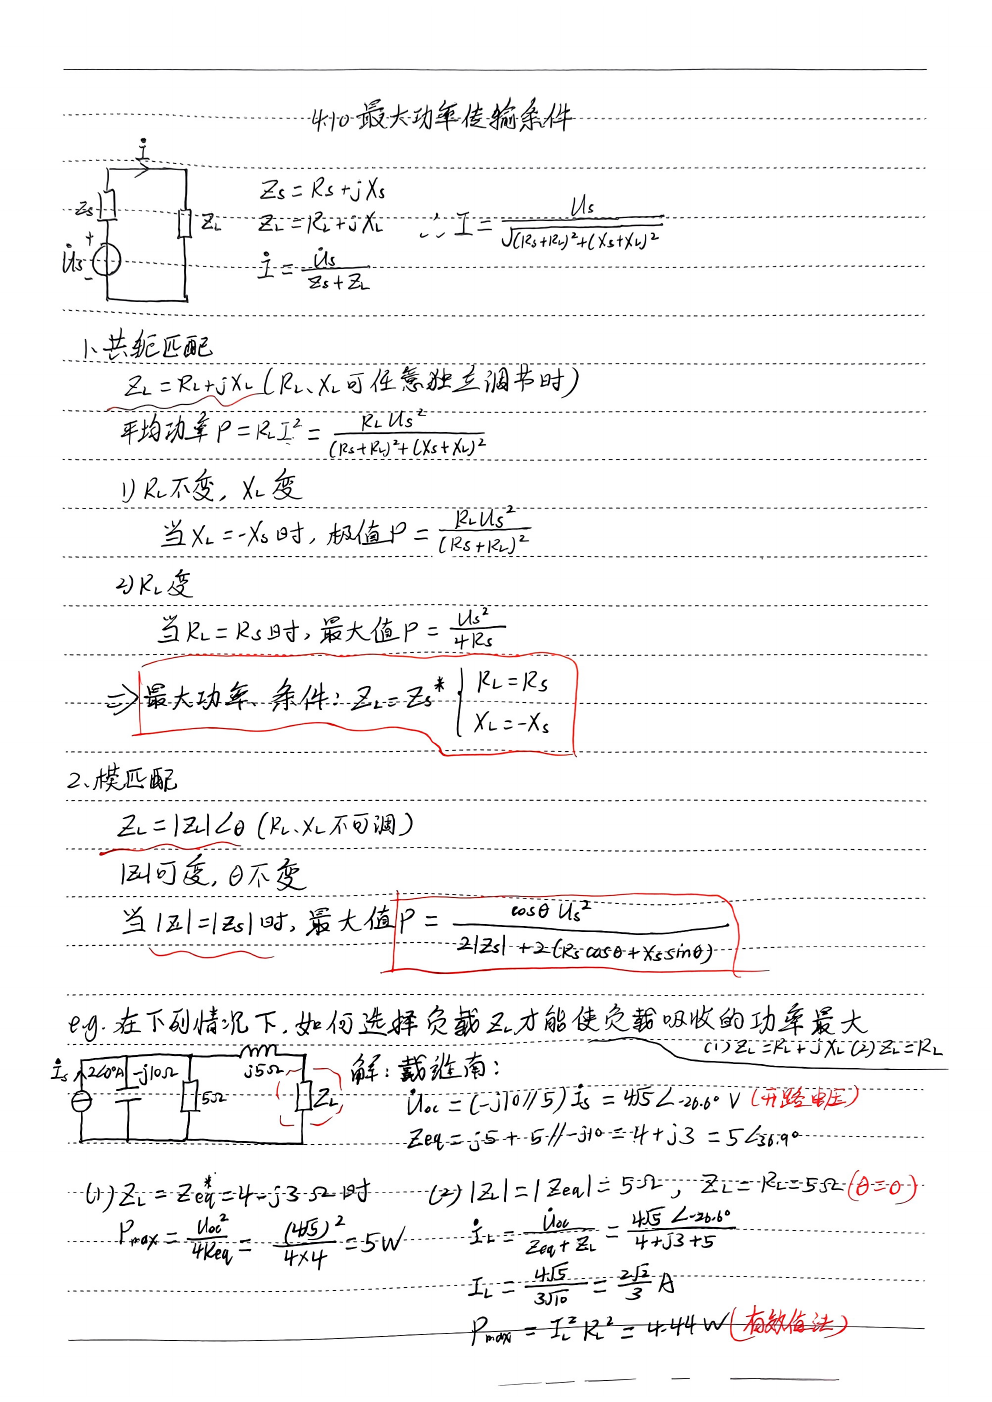 4.10 最大功率传输条件
İ
Zs
ZL
+
U̇s
-
Zs = Rs + jXs
ZL = RL + jXL ∴ I = Us / √((Rs+RL)²+(Xs+XL)²)
İ = U̇s / (Zs + ZL)
1、共轭匹配
ZL = RL + jXL (RL、XL可任意独立调节时)
平均功率 P = RLI² = RLUs² / ((Rs+RL)²+(Xs+XL)²)
1) RL不变, XL变
当 XL = -Xs 时, 极值 P = RLUs² / (Rs+RL)²
2) RL变
当 RL = Rs 时, 最大值 P = Us² / 4Rs
⇒ 最大功率、条件: ZL = Zs* { RL = Rs
XL = -Xs
2、模匹配
ZL = |ZL|∠θ (RL、XL不可调)
|Z|可变, θ不变
当 |ZL| = |Zs| 时, 最大值 P = cosθ Us² / (2|Zs| + 2(Rs cosθ + Xs sinθ))
e.g. 在下列情况下, 如何选择负载ZL才能使负载吸收的功率最大
(1) ZL = RL + jXL (2) ZL = RL
İs 2∠0°A -j10Ω 5Ω j5Ω ZL
解: 戴维南:
U̇oc = (-j10 // 5) İs = 4√5 ∠-26.6° V (开路电压)
Zeq = j5 + 5 // -j10 = 4 + j3 = 5∠36.9°
(1) ZL = Zeq* = 4 - j3 Ω 时
Pmax = Uoc² / 4Req = (4√5)² / 4×4 = 5W
(2) |ZL| = |Zeq| = 5Ω, ZL = RL = 5Ω (θ=0)
İL = U̇oc / (Zeq + ZL) = 4√5 ∠-26.6° / (4+j3+5)
IL = 4√5 / 3√10 = 2√2 / 3 A
Pmax = IL² RL² = 4.44W (有效值法)